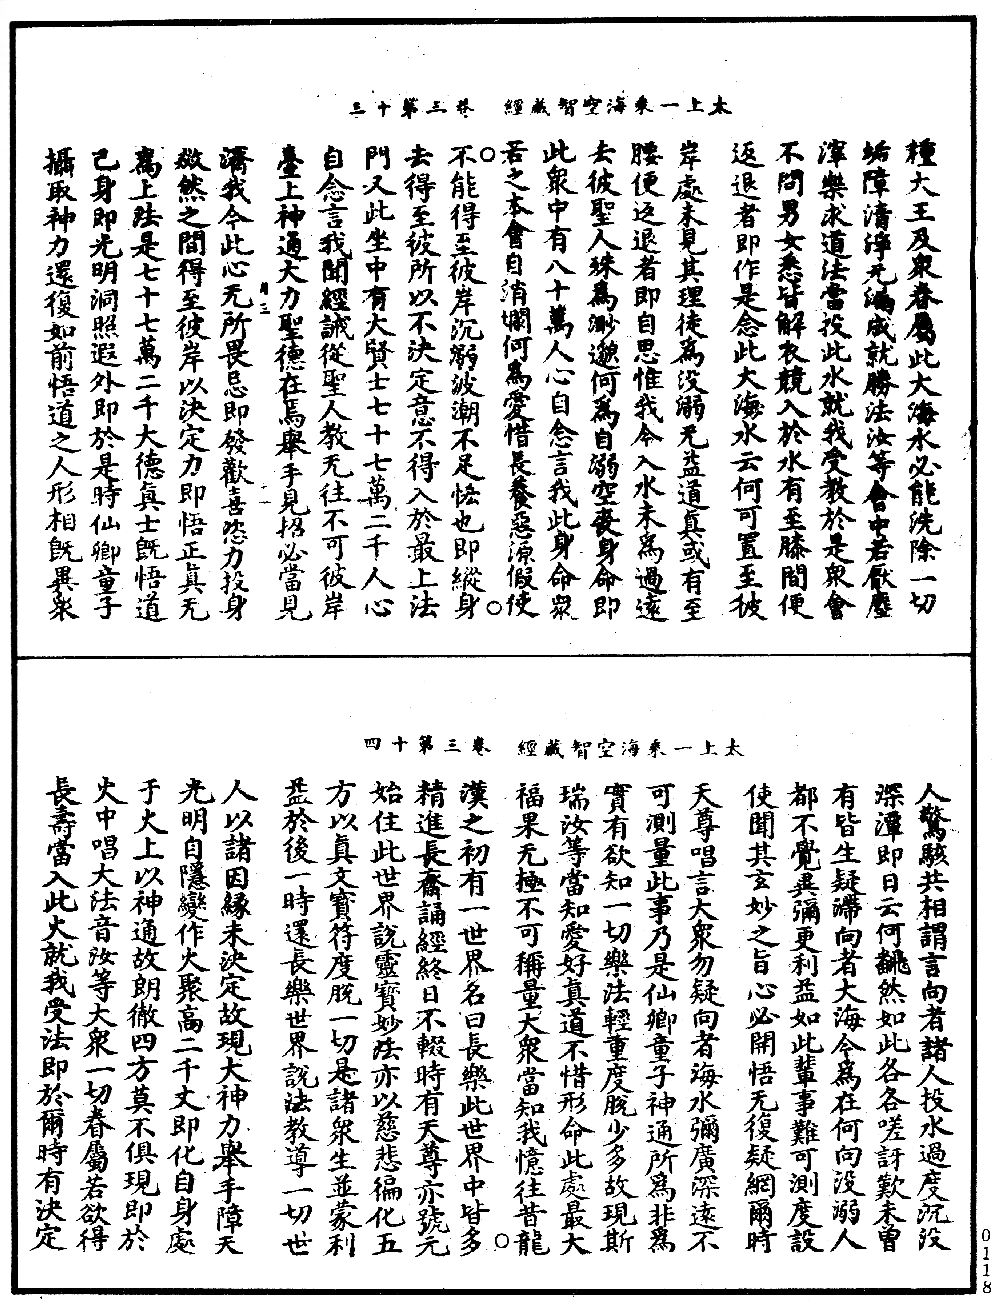 太上一乘海空智藏經　卷三第十三
種大王及衆眷屬此大海水必能洗除一切
垢障清淨无漏成就勝法汝等會中若厭塵
滓樂求道法當投此水就我受教於是衆會
不問男女悉皆解衣競入於水有至膝間便
返退者即作是念此大海水云何可置至彼
岸處未見其理徒爲没溺无益道真或有至
腰便返退者即自思惟我今入水未爲過遠
去彼聖人殊爲渺邈何爲自溺空喪身命即
此衆中有八十萬人心自念言我此身命衆
苦之本會自消爛何爲愛惜長養惡源假使
不能得至彼岸沉溺波潮不足恡也即縱身
去得至彼所以不決定意不得入於最上法
門又此坐中有大賢士七十七萬二千人心
自念言我聞經誡從聖人教无往不可彼岸
臺上神通大力聖德在焉舉手見招必當見
濟我今此心无所畏忌即發歡喜恣力投身
歘然之間得至彼岸以決定力即悟正真无
爲上法是七十七萬二千大德真士既悟道
己身即光明洞照遐外即於是時仙鄉童子
攝取神力還復如前悟道之人形相既異衆
太上一乘海空智藏經　卷三第十四
人驚駭共相謂言向者諸人投水過度沉没
深潭即日云何飜然如此各各嗟訝歎未曾
有皆生疑滯向者大海今爲在何向没溺人
都不覺異彌更利益如此輩事難可測度設
使聞其玄妙之旨心必開悟无復疑網爾時
天尊唱言大衆勿疑向者海水彌廣深遠不
可測量此事乃是仙鄉童子神通所爲非爲
實有欲知一切樂法輕重度脱少多故現斯
瑞汝等當知愛好真道不惜形命此處最大
福果无極不可稱量大衆當知我憶往昔龍
漢之初有一世界名曰長樂此世界中皆多
精進長齋誦經終日不輟時有天尊亦號元
始住此世界説靈寶妙法亦以慈悲徧化五
方以真文寶符度脱一切是諸衆生並蒙利
益於後一時還長樂世界説法教導一切世
人以諸因緣未決定故現大神力舉手障天
光明自隱變作火聚高二千丈即化自身處
于火上以神通故朗徹四方莫不俱現即於
火中唱大法音汝等大衆一切眷屬若欲得
長壽當入此火就我受法即於爾時有決定
0118